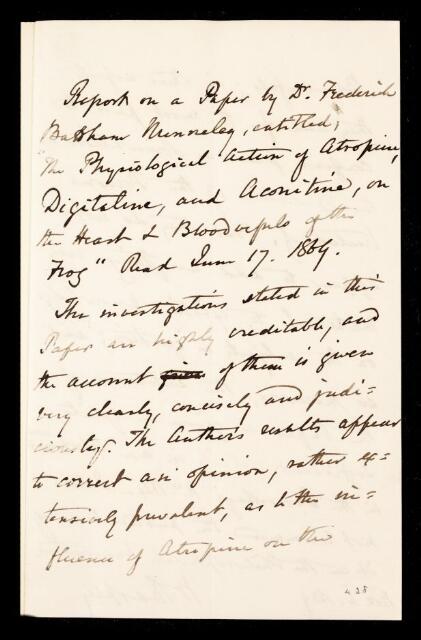 Report on a Paper by Dr. Frederich
Badham Nunneley, entitled,
"The Physiological Action of Atropine,
Digitaline, and Aconitine, on
the Heart & Bloodvessels of the
Frog" Read June 17. 1869.
The investigations stated in this
Paper are highly creditable, and
the account of them is given
very clearly, concisely and judi=
ciously. The Author's results appear
to correct an opinion, rather ex=
tensively prevalent, as to the in=
fluence of Atropine on the
428